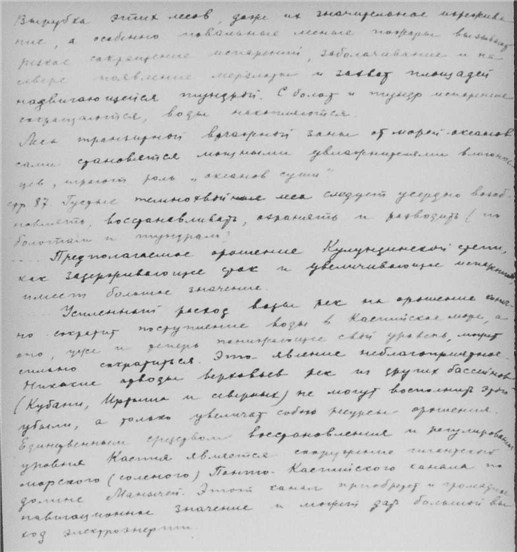 Вырубка этих лесов, даже их значительное изрежива-
ние, а особенно повальные лесные пожары вызывают
резкое сокращение испарений, заболачивание и на
севере появление мерзлоты и захват площадей
надвигающейся тундрой. С болот и тундр испарение
сокращаются, воды накопляются.
Леса транзитной зоны от морей океанов
сами становятся мощными увлажнителями
цев, играют роль „океанов суши"
стр. 87. Густые темнохвойные леса следует усердно возоб-
новлять, восстанавливать, охранять и разводить (по
болотам и тундрам)
.... Предполагаемое орошение Кулундинской степи,
как задерживающее сток и увеличивающее испарения
имеет большое значение.
Усиленный расход воды рек на орошение
но сократит поступление воды в Каспийское море, а
оно, уже и теперь понижающее свой уровень, может
сильно сократиться. Это явление неблагоприятное.
Никакие подводы верховьев рек из других бассейнов
(Кубани, Иртыша и северных) не могут восполнить этой
убыли, а только увеличат собою ресурсы орошения.
Единственным средством восстановления и регулирования
уровня Каспия является сооружение
морского (соленого) Понто-Каспийского канала по
долине Маныча. Этот канал приобретет и громадное
навигационное значение и может дать большой вы-
ход электроэнергии.